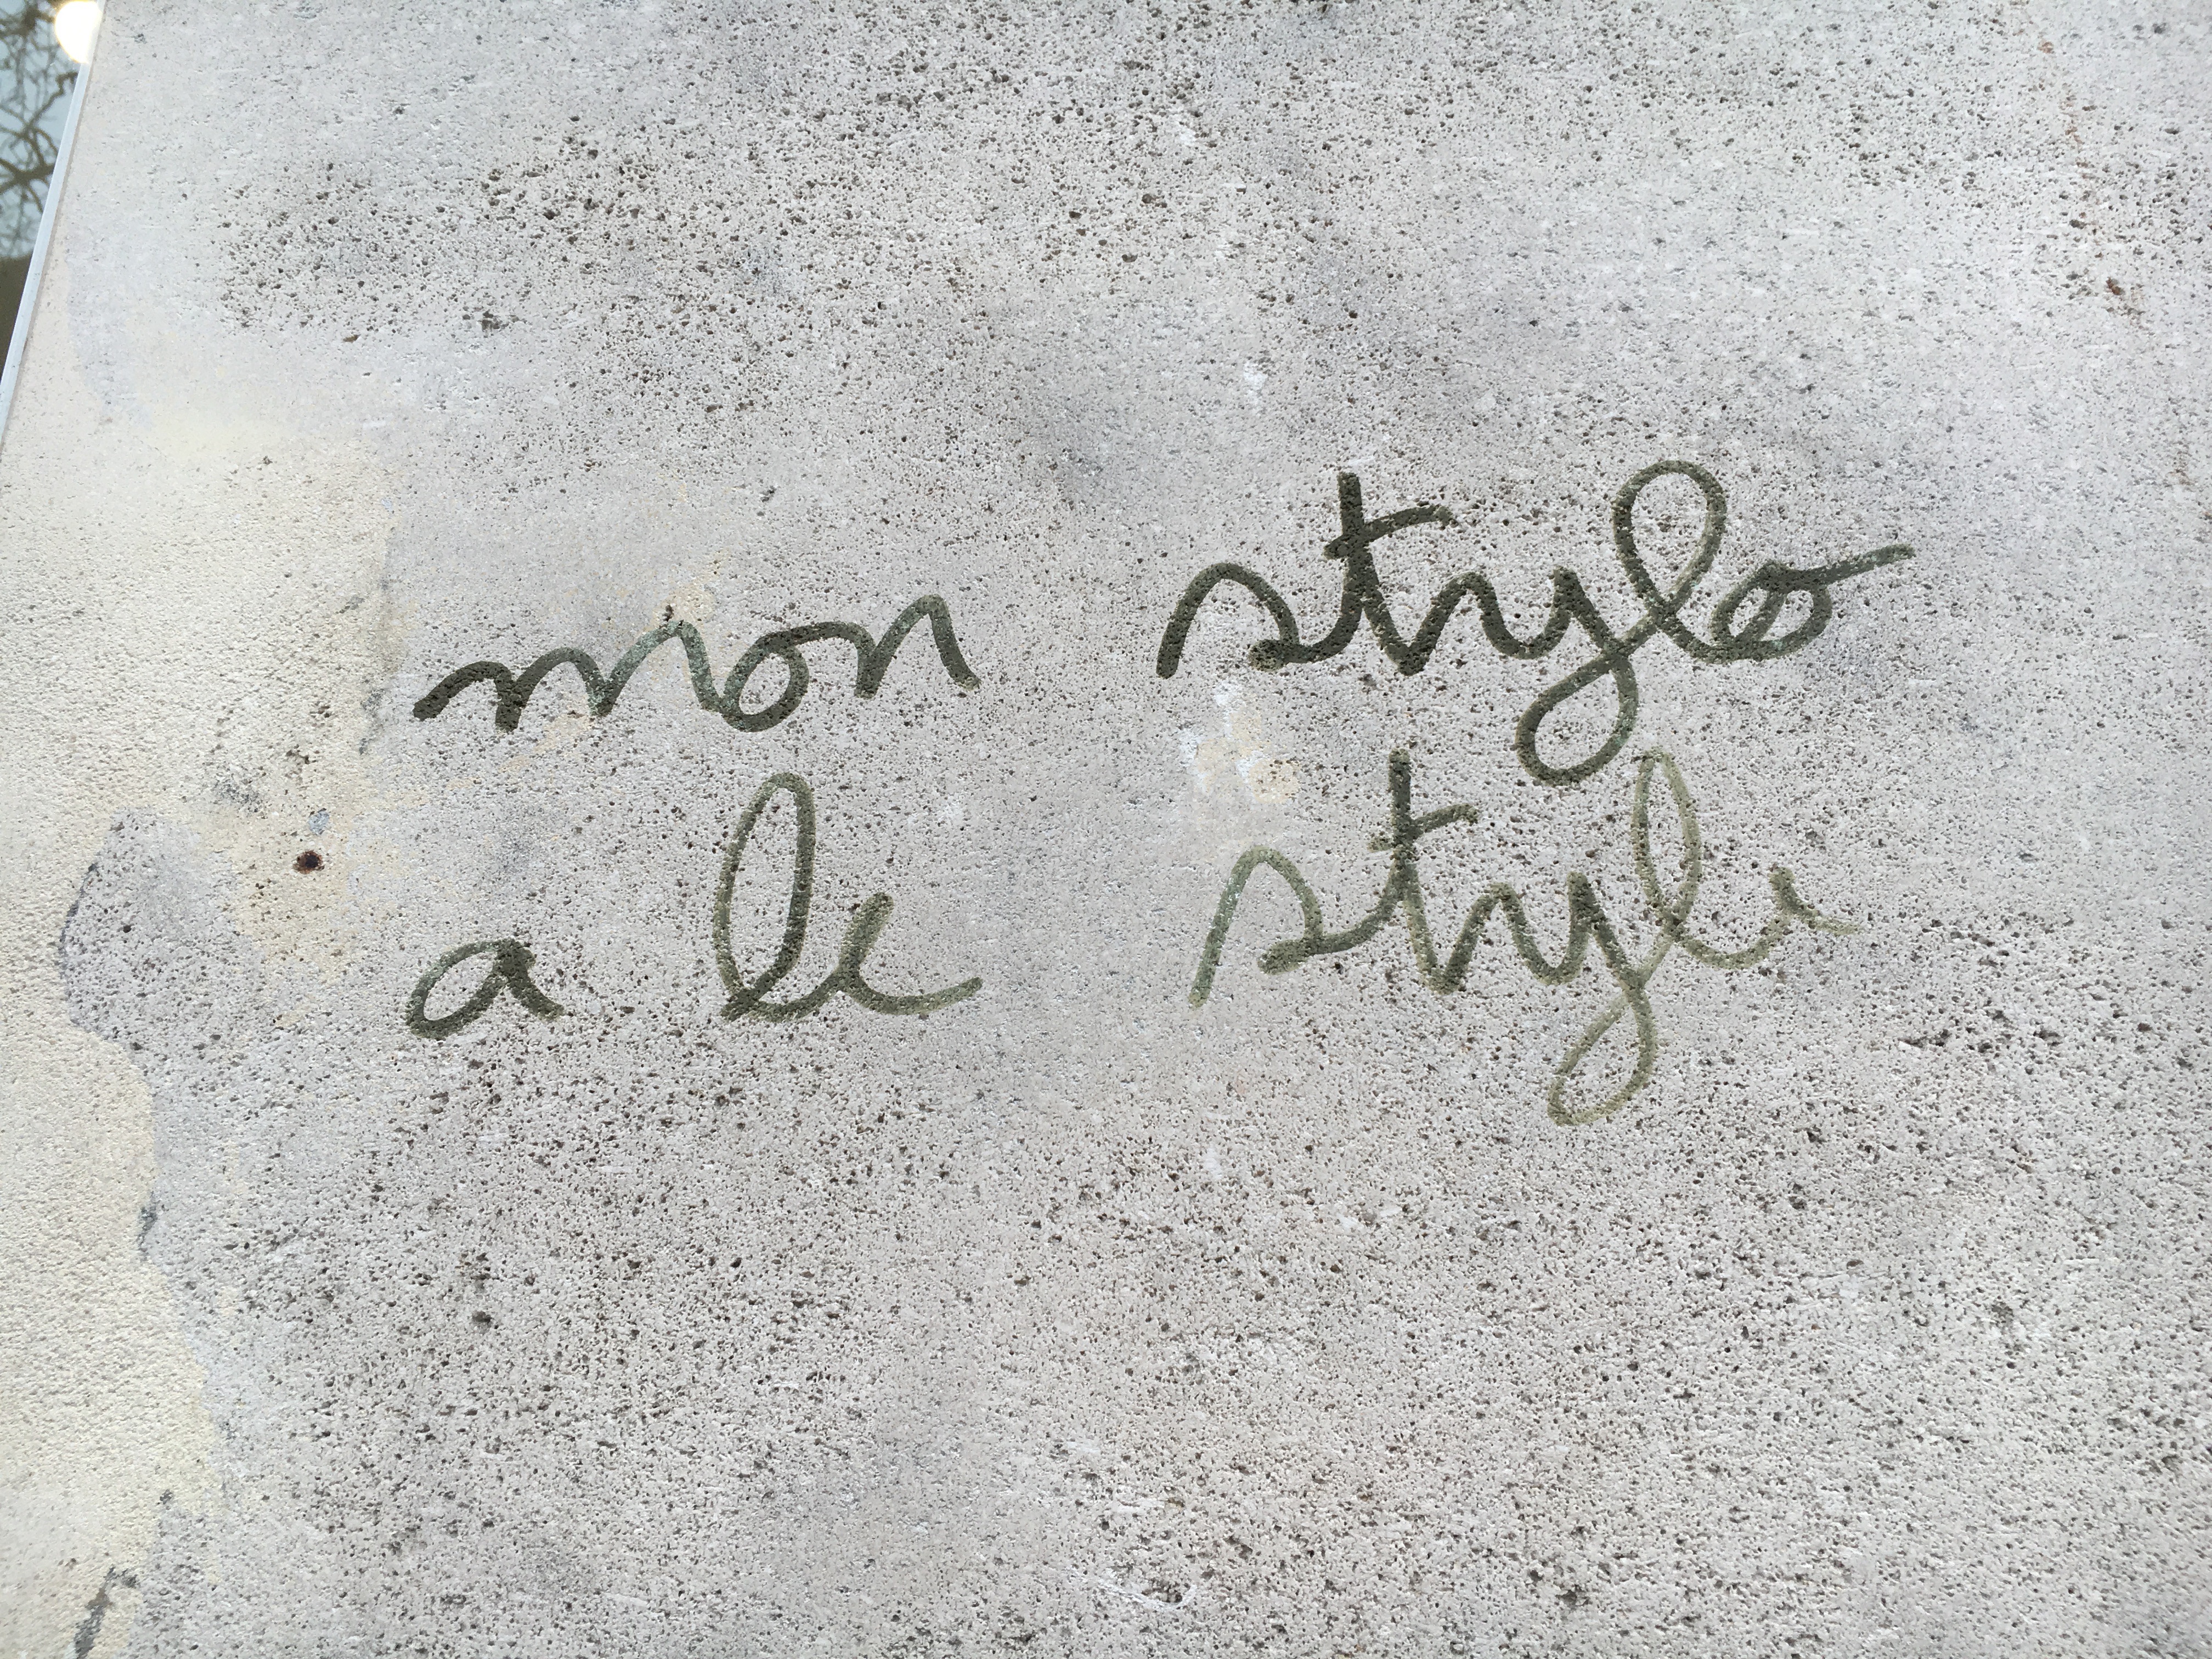 mon stylo
a le style